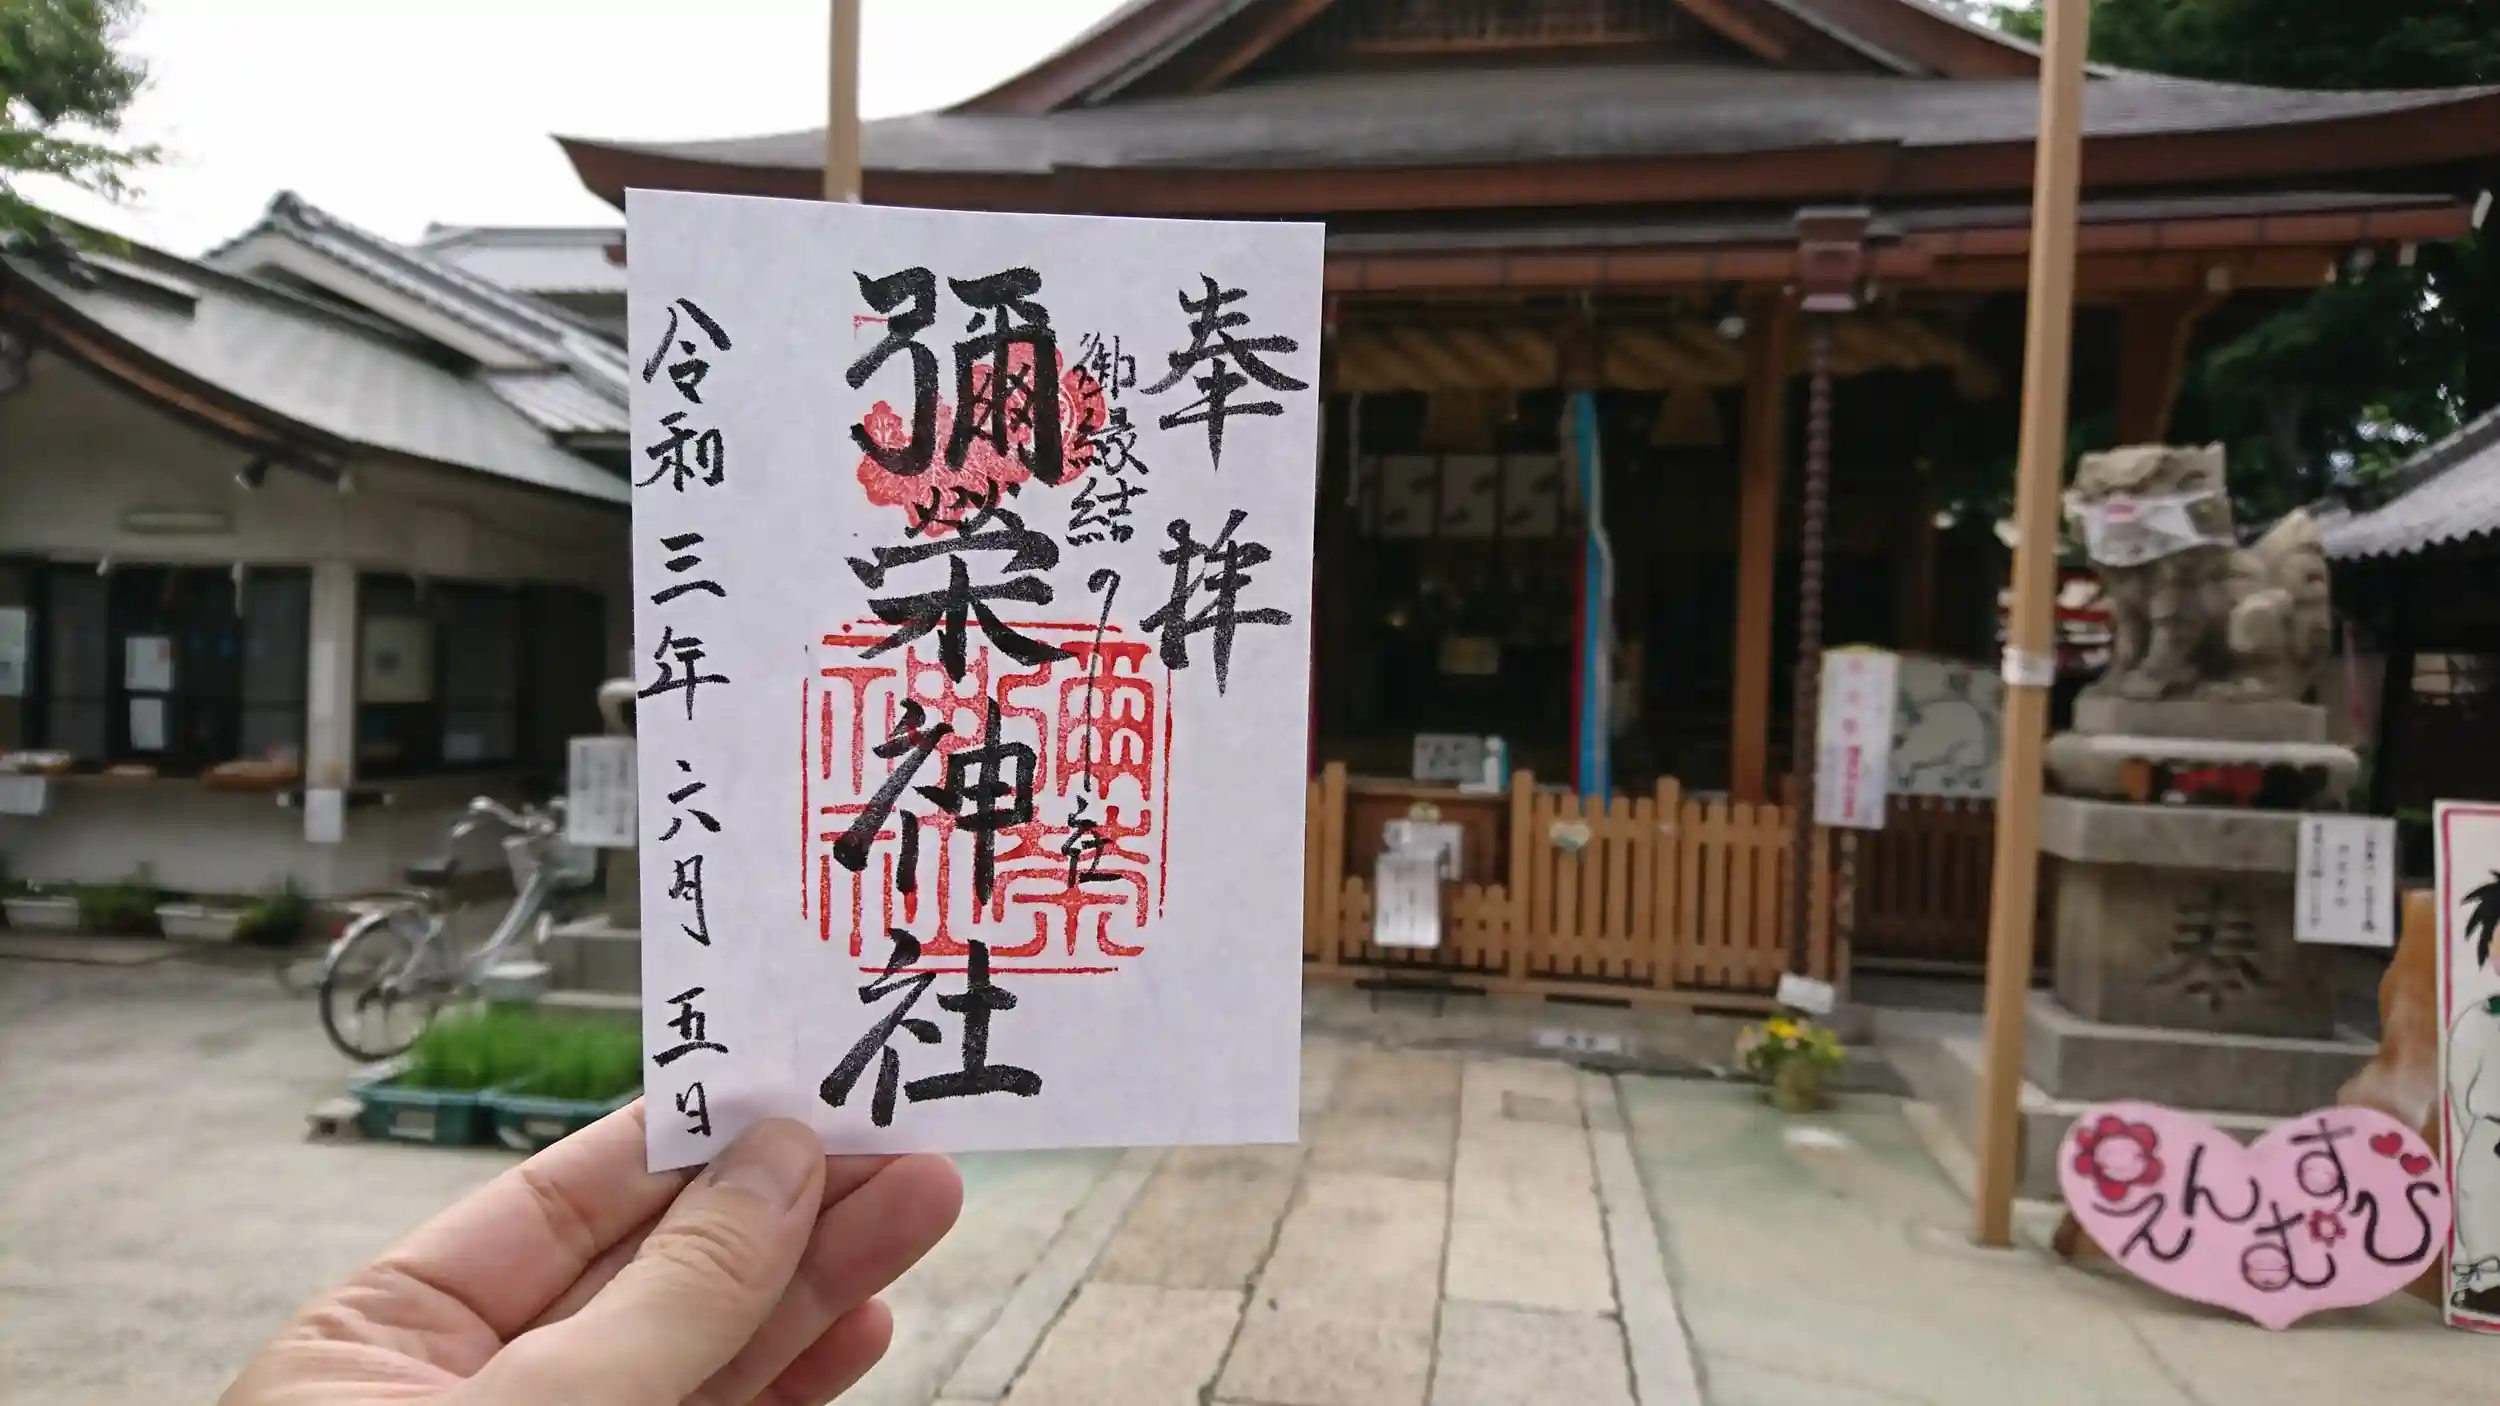 奉拝
御縁結の社
彌榮神社
彌榮
神社
令和三年六月五日
奉
えんむすび